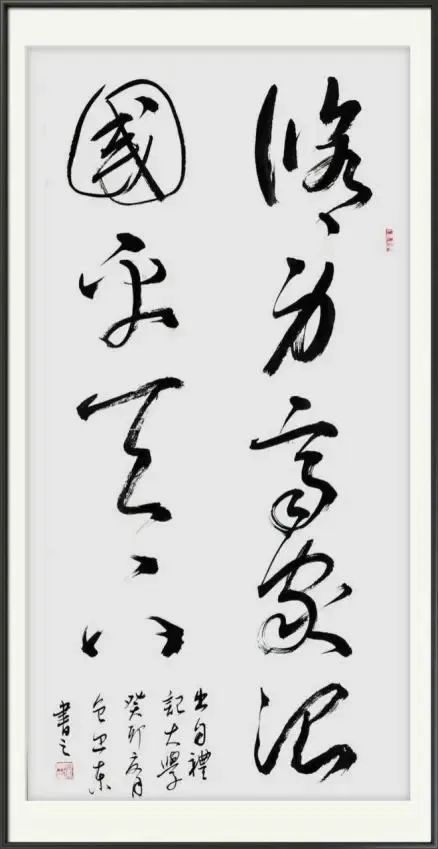 修身齊家治
國平天下
出自禮
記大學
癸卯月
東
書之